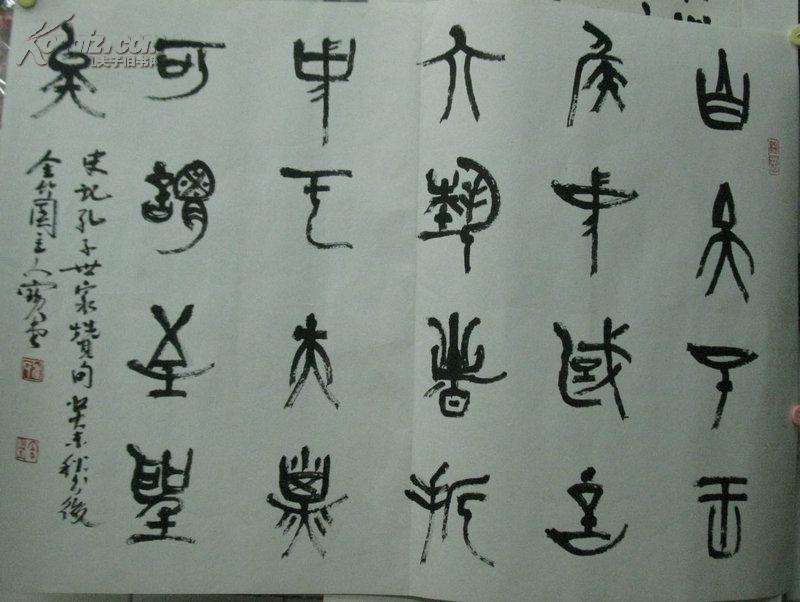 自天子王
侯中國言
六藝者折
中于夫子
可謂至聖
矣
史記孔子世家贊句癸未秋分後
主人
Kongfz.com
孔夫子旧书网